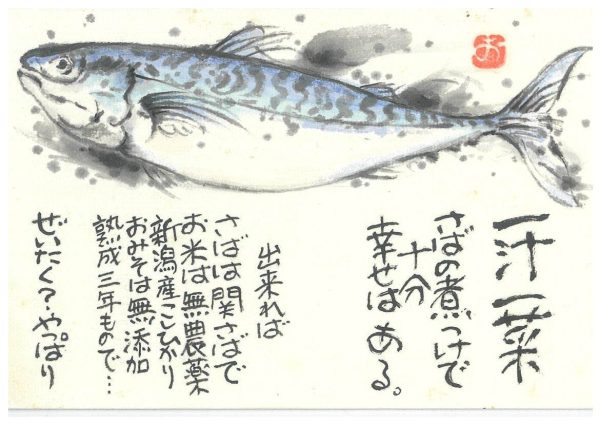 一汁一菜
さばの煮つけで
十分
幸せは ある。
出来れば
さばは関さばで
お米は無農薬
新潟産こしひかり
おみそは無添加
熟成三年もので…
ぜいたく?やっぱり
お